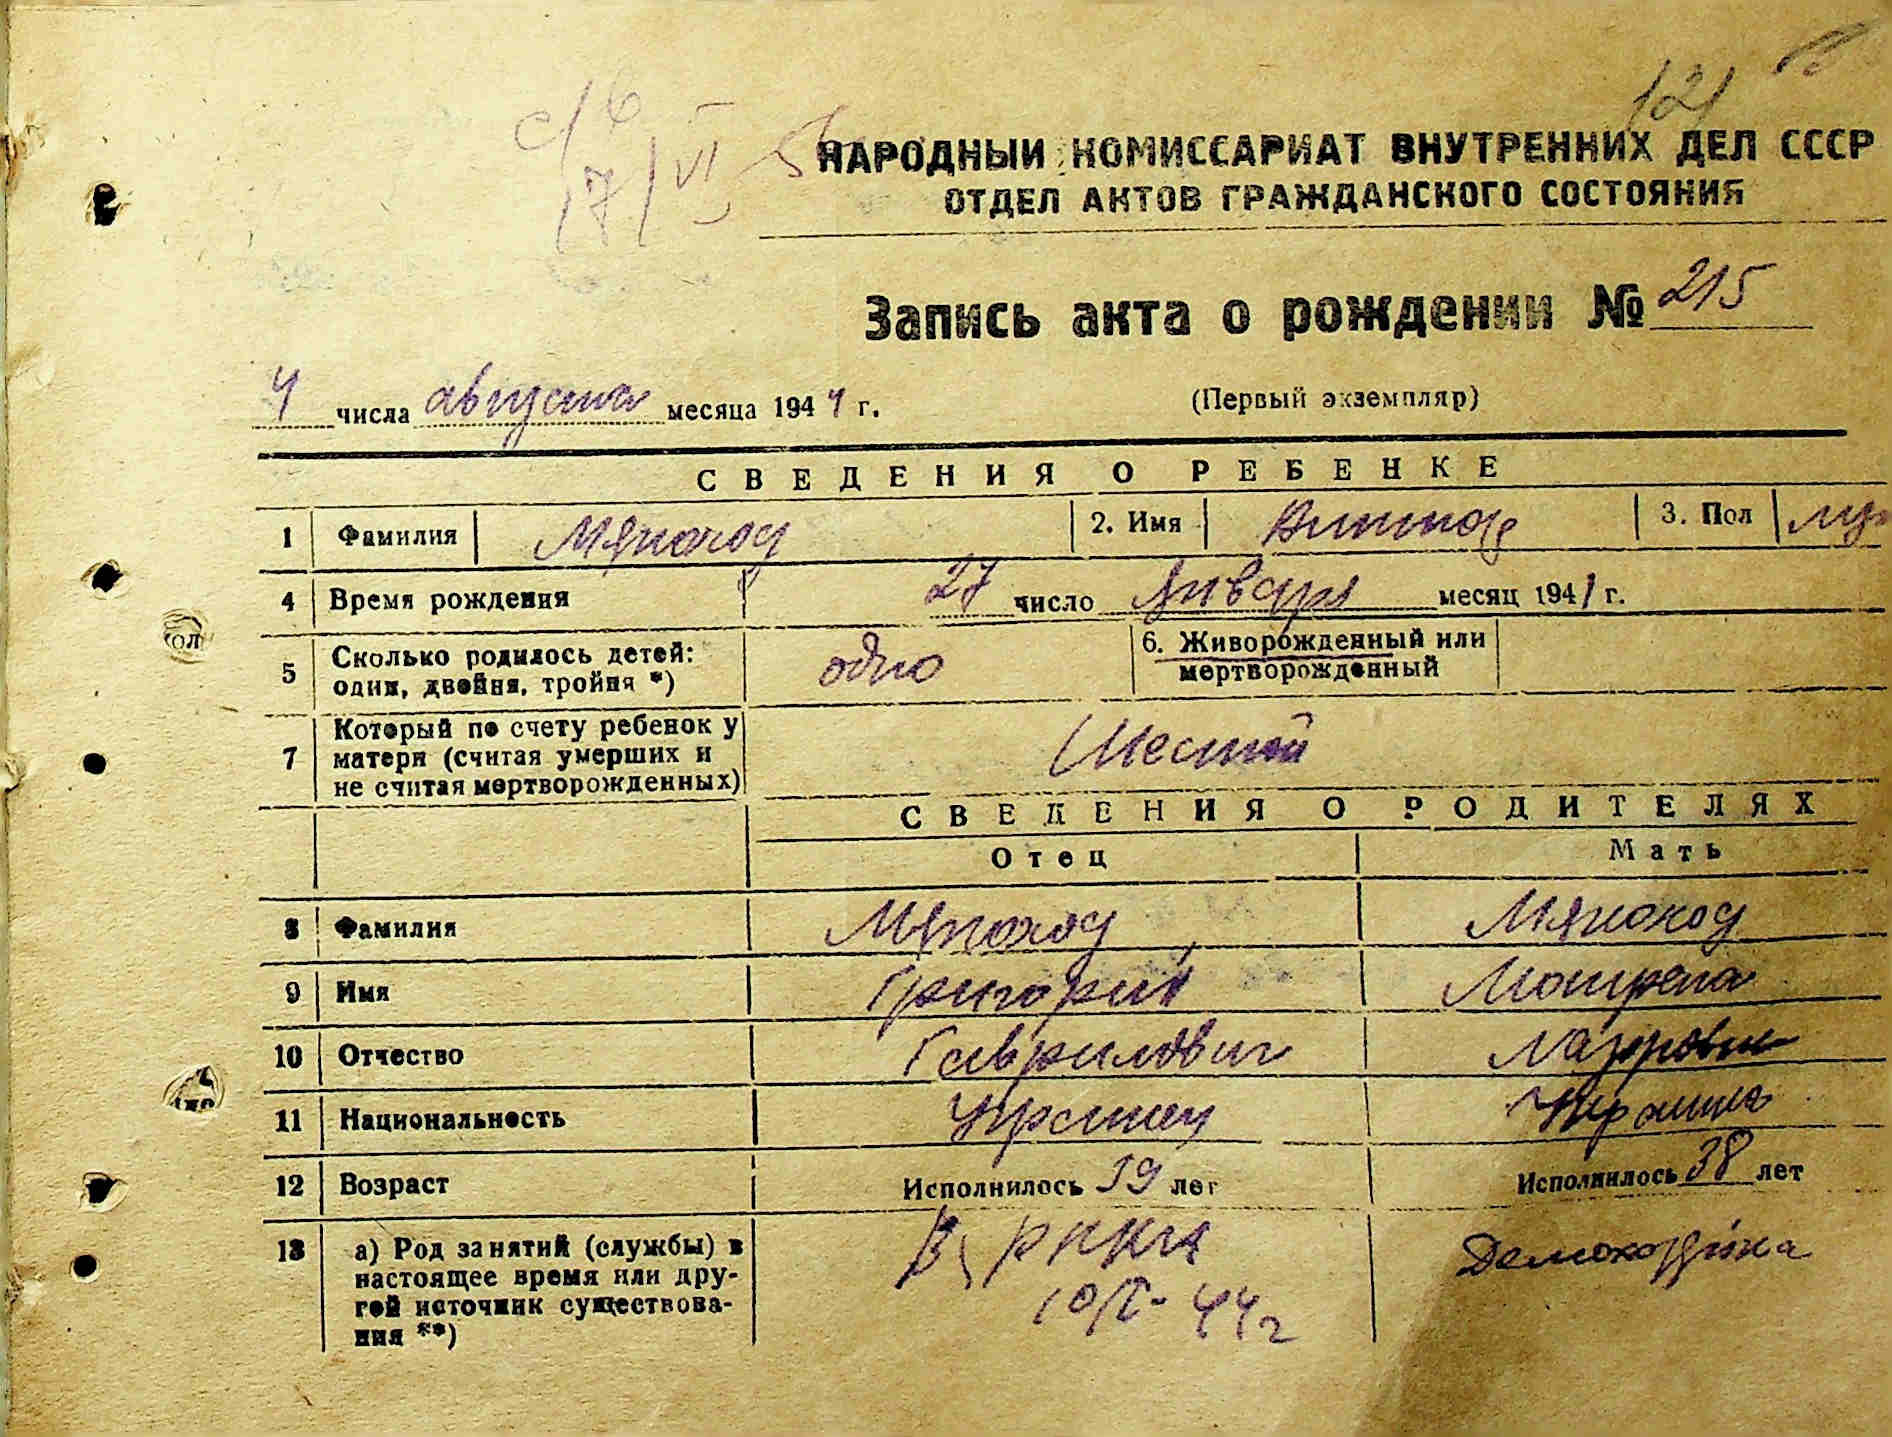 121
с/б
7/VI
НАРОДНЫЙ КОМИССАРИАТ ВНУТРЕННИХ ДЕЛ СССР
ОТДЕЛ АКТОВ ГРАЖДАНСКОГО СОСТОЯНИЯ
Запись акта о рождении № 215
4 числа августа месяца 1944 г. (Первый экземпляр)
СВЕДЕНИЯ О РЕБЕНКЕ
1 Фамилия Мяноход 2. Имя Виктор 3. Пол муж
4 Время рождения 27 число Января месяц 1941 г.
5 Сколько родилось детей: один, двойня, тройня *) одно 6. Живорожденный или мертворожденный
7 Который по счету ребенок у матери (считая умерших и не считая мертворожденных) Шестой
СВЕДЕНИЯ О РОДИТЕЛЯХ
Отец Мать
8 Фамилия Мяноход Мяноход
9 Имя Григорий Мотрена
10 Отчество Гаврилович
11 Национальность Украинец Украинка
12 Возраст Исполнилось 39 лет Исполнилось 38 лет
13 а) Род занятий (службы) в настоящее время или другой источник существования **) В РККА Домохозяйка
44 г